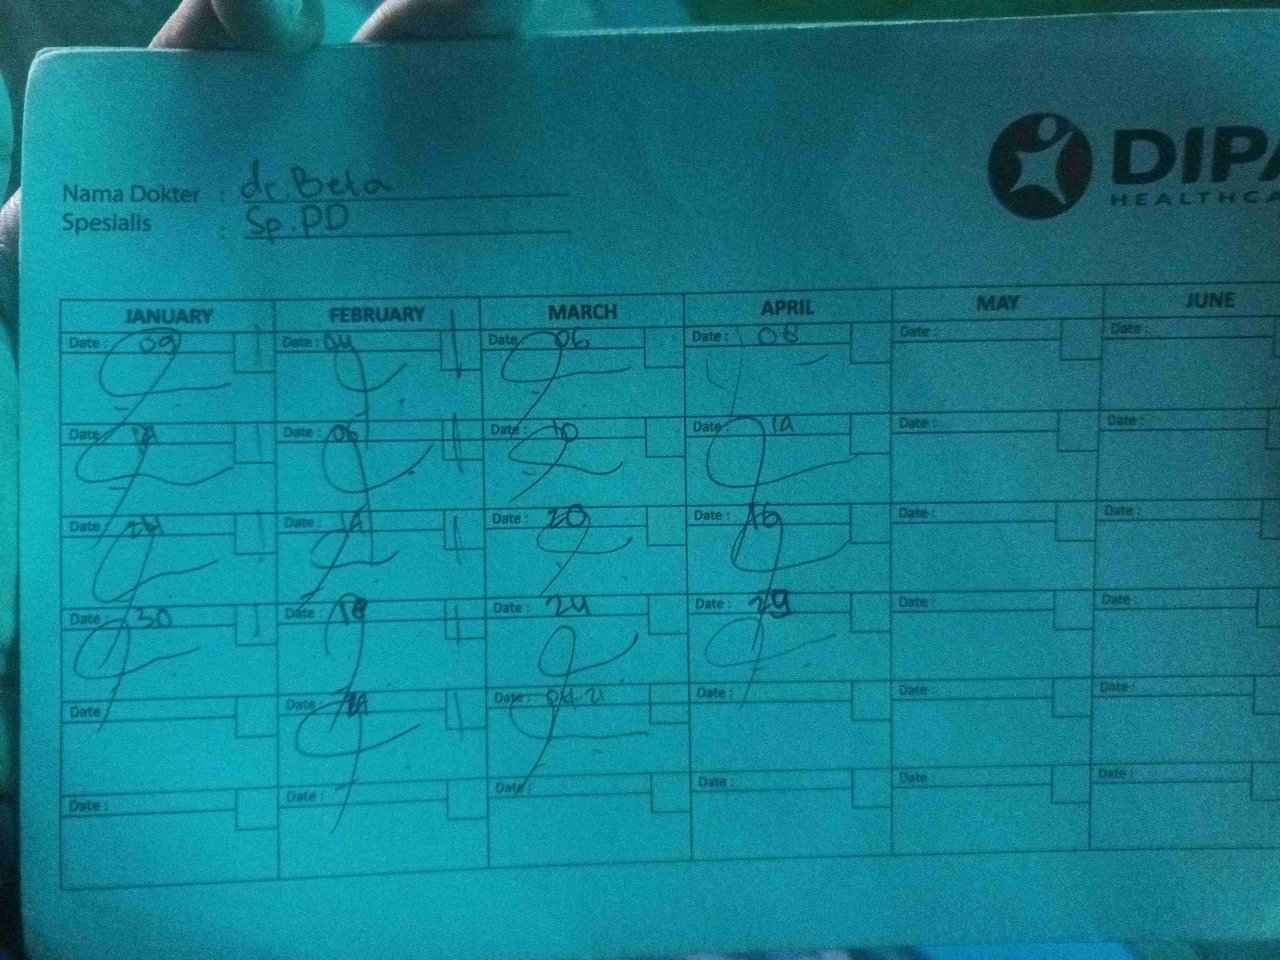 DIPA
HEALTHCA
Nama Dokter : dr. Bela
Spesialis : Sp.PD
JANUARY FEBRUARY MARCH APRIL MAY JUNE
Date : 09 Date : 04 Date : 06 Date : 08 Date : Date :
Date : Date : 06 Date : 10 Date : Date : Date :
Date : 24 Date : Date : 20 Date : 16 Date : Date :
Date : 30 Date : 18 Date : 24 Date : 29 Date : Date :
Date : Date : Date : Date : Date : Date :
Date : Date : Date : Date : Date : Date :